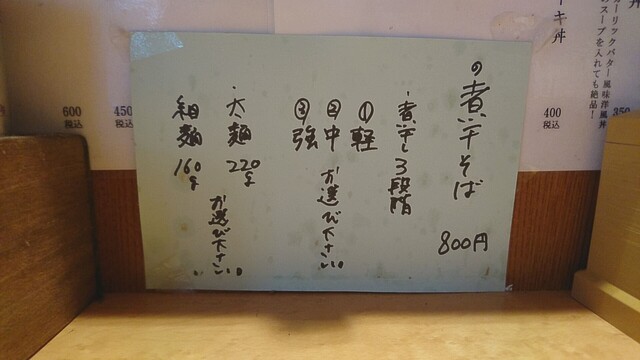 の煮干そば
800円
・煮干し3段階
①軽
②中
③強
お選び下さい
・太麺 220g
細麺 160g
お選び下さい
600
税込
450
税込
400
税込
350
キ丼
ガーリックバター風味洋風丼
のスープを入れても絶品！